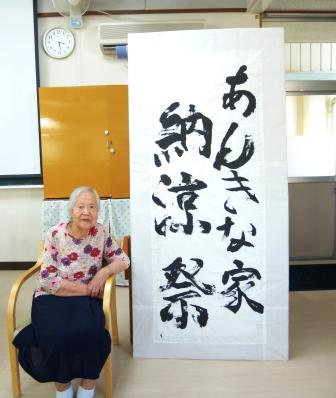 あんきな家
納涼祭